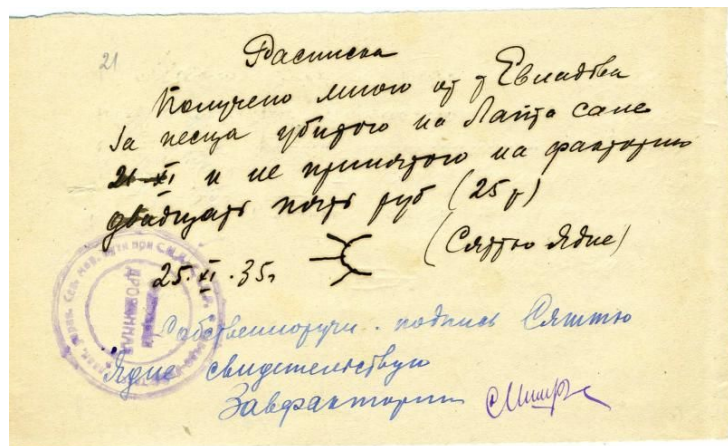 21
Расписка
Получено мною от т Евладова
за песца убитого на Лапто сале
21-XI и не принятого на факторию
двадцать пять руб (25 р)
(Сяттю Ядне)
25.XI.35г
Собственноручн. подпись Сяттю
Ядне свидетельствую
Завфакторией